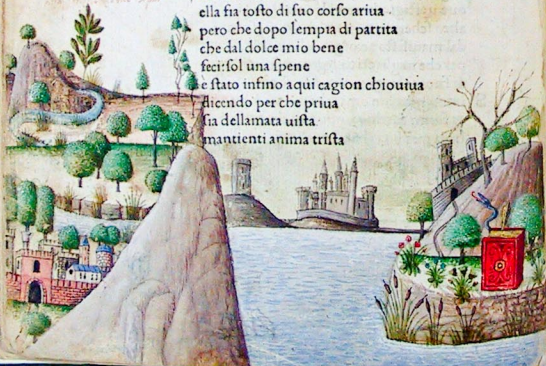 ella ſia toſto di ſuo corſo ariua
pero che dopo lempia di partita
che dal dolce mio bene
feci: ſol una ſpene
e ſtato infino aqui cagion chiouiua
dicendo per che priua
ſia dellamata uiſta
mantienti anima triſta